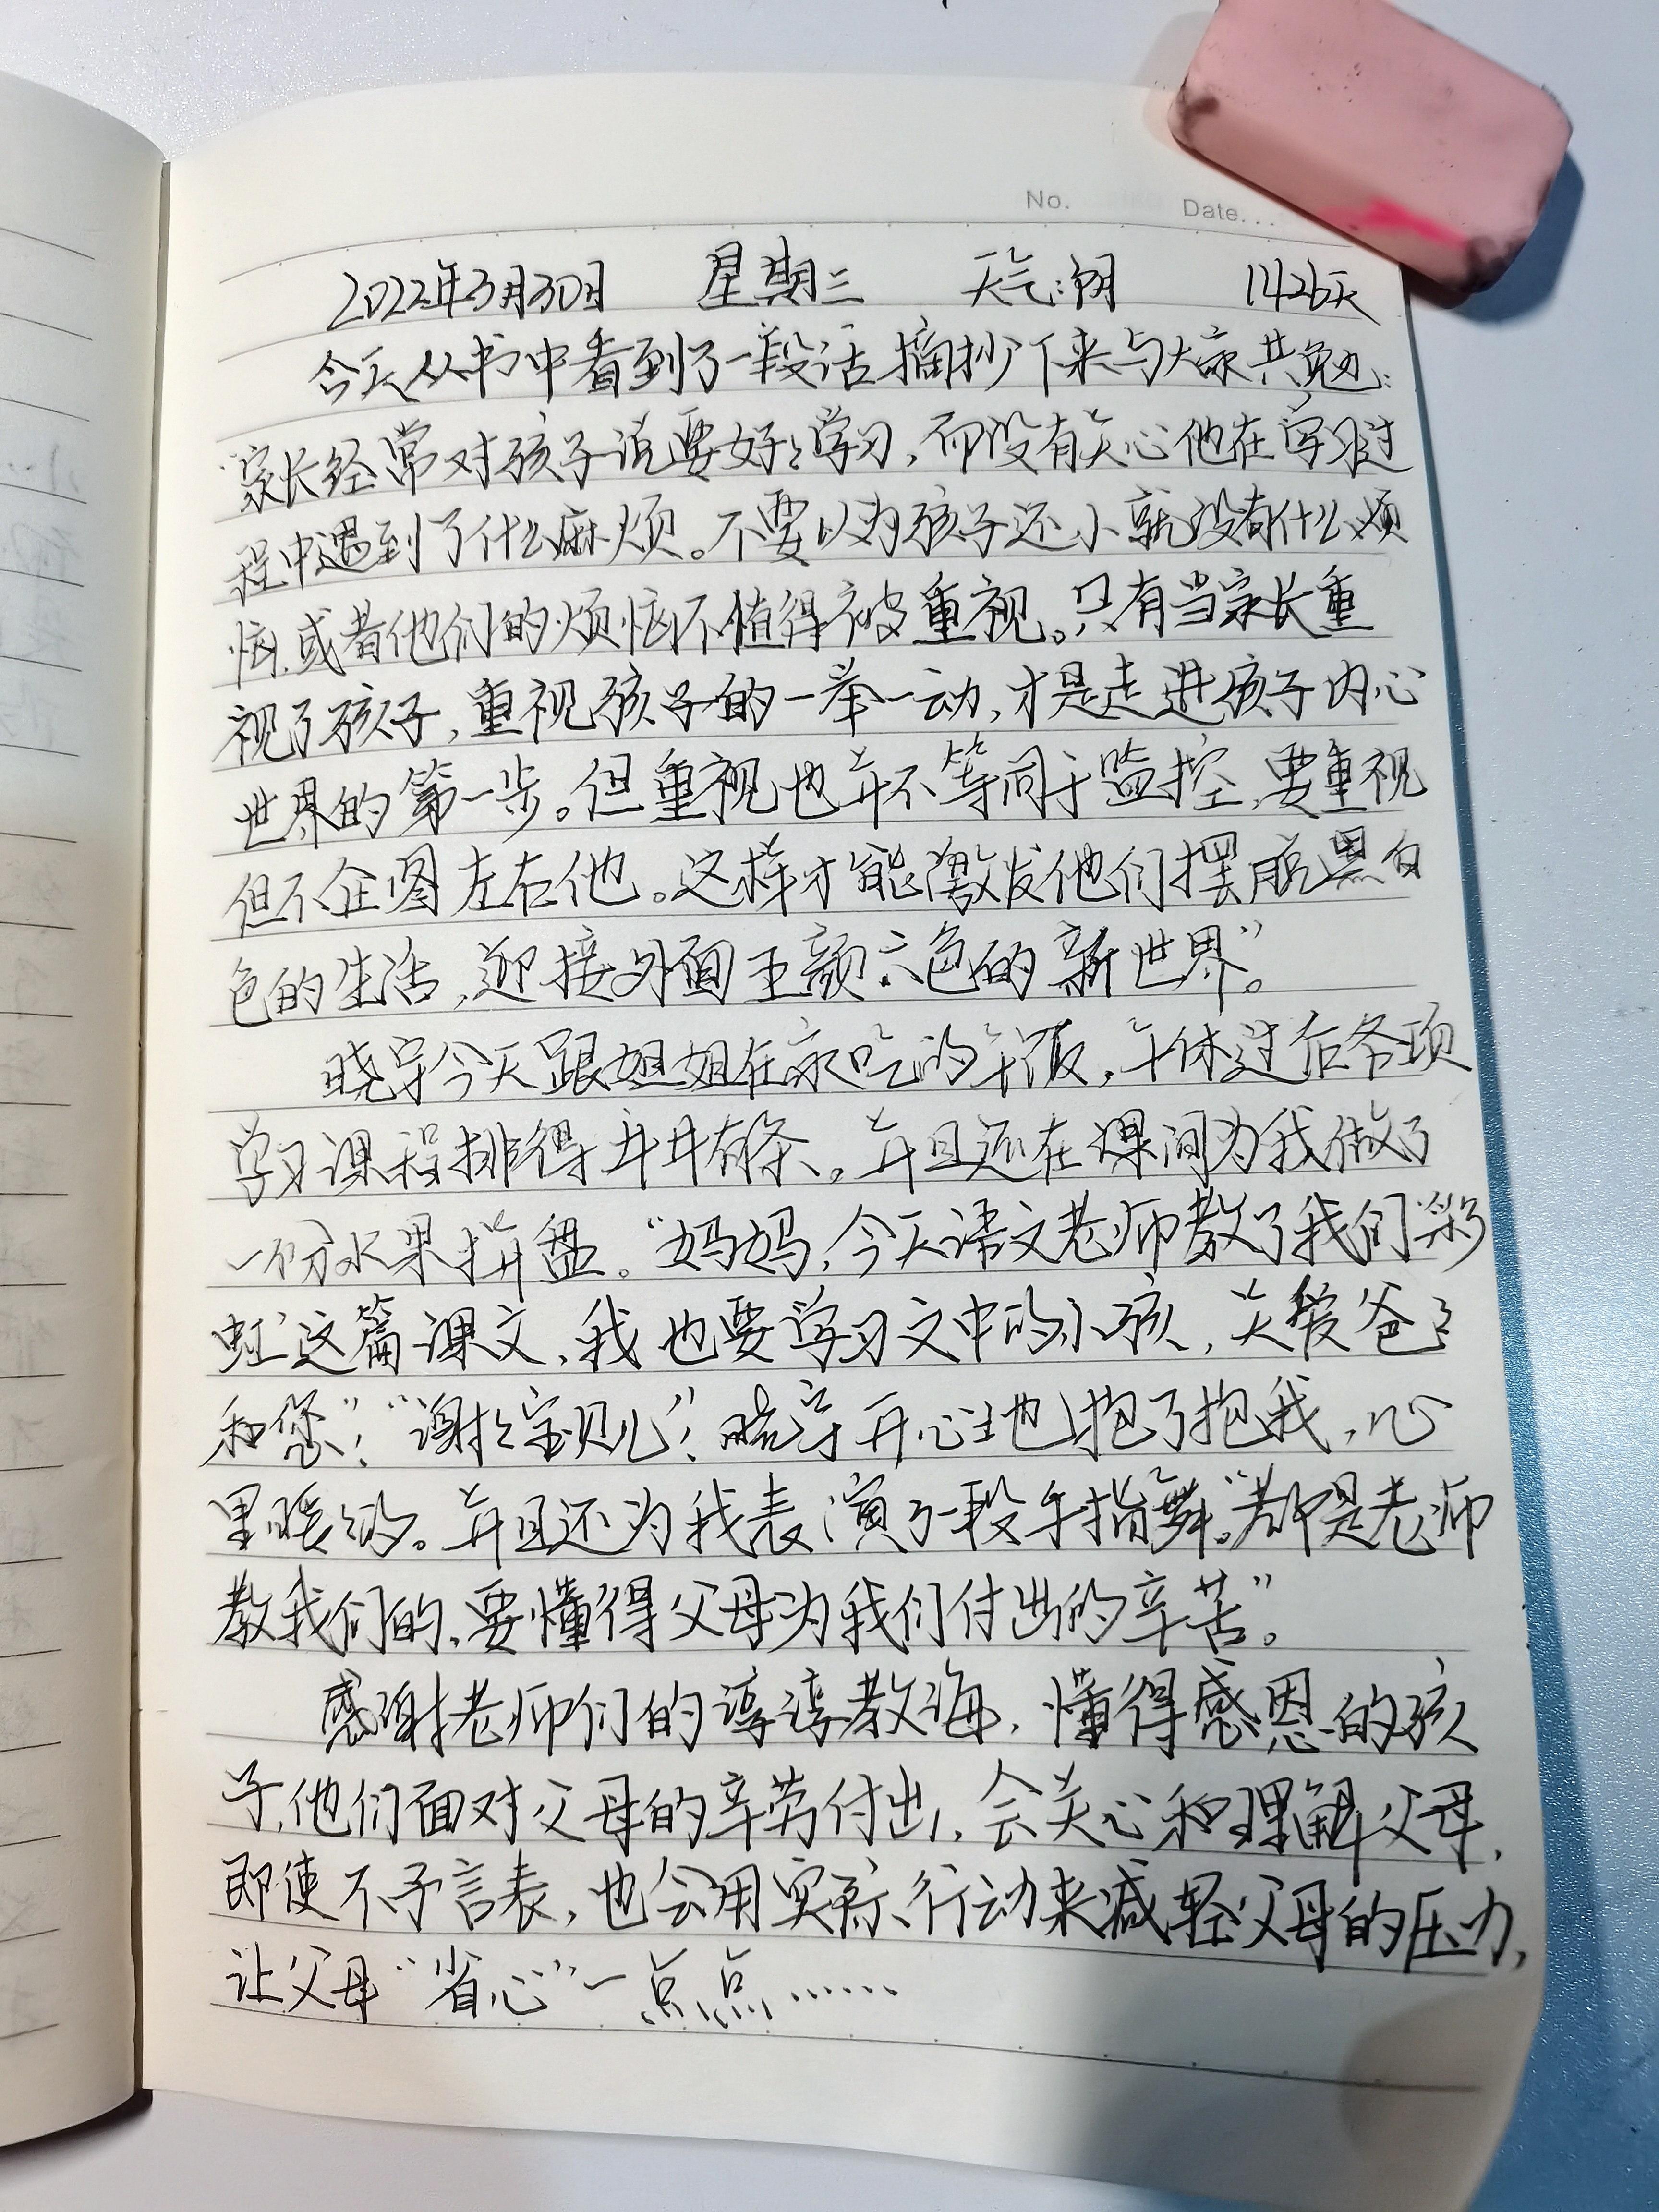 No. Date...
2022年3月30日 星期三 天气:阴 1426天
今天从书中看到了一段话摘抄下来与大家共勉:
"家长经常对孩子说要好好学习,而没有关心他在学习过
程中遇到了什么麻烦。不要以为孩子还小就没有什么烦
恼,或者他们的烦恼不值得被重视。只有当家长重
视了孩子,重视孩子的一举一动,才是走进孩子内心
世界的第一步。但重视也并不等同于监控,要重视
但不企图左右他。这样才能激发他们摆脱黑白
色的生活,迎接外面五颜六色的新世界"。
晓宇今天跟姐姐在家吃的午饭,午休过后各项
学习课程排得井井有条。并且还在课间为我做了
一份水果拼盘。"妈妈,今天语文老师教了我们'彩
虹'这篇课文,我也要学习文中的小孩,关爱爸爸
和您"!"谢谢宝贝儿"!晓宇开心地抱了抱我,心
里暖暖的。并且还为我表演了一段手指舞。"都是老师
教我们的,要懂得父母为我们付出的辛苦"。
感谢老师们的谆谆教诲,懂得感恩的孩
子,他们面对父母的辛劳付出,会关心和理解父母,
即使不予言表,也会用实际行动来减轻父母的压力,
让父母"省心"一点点……